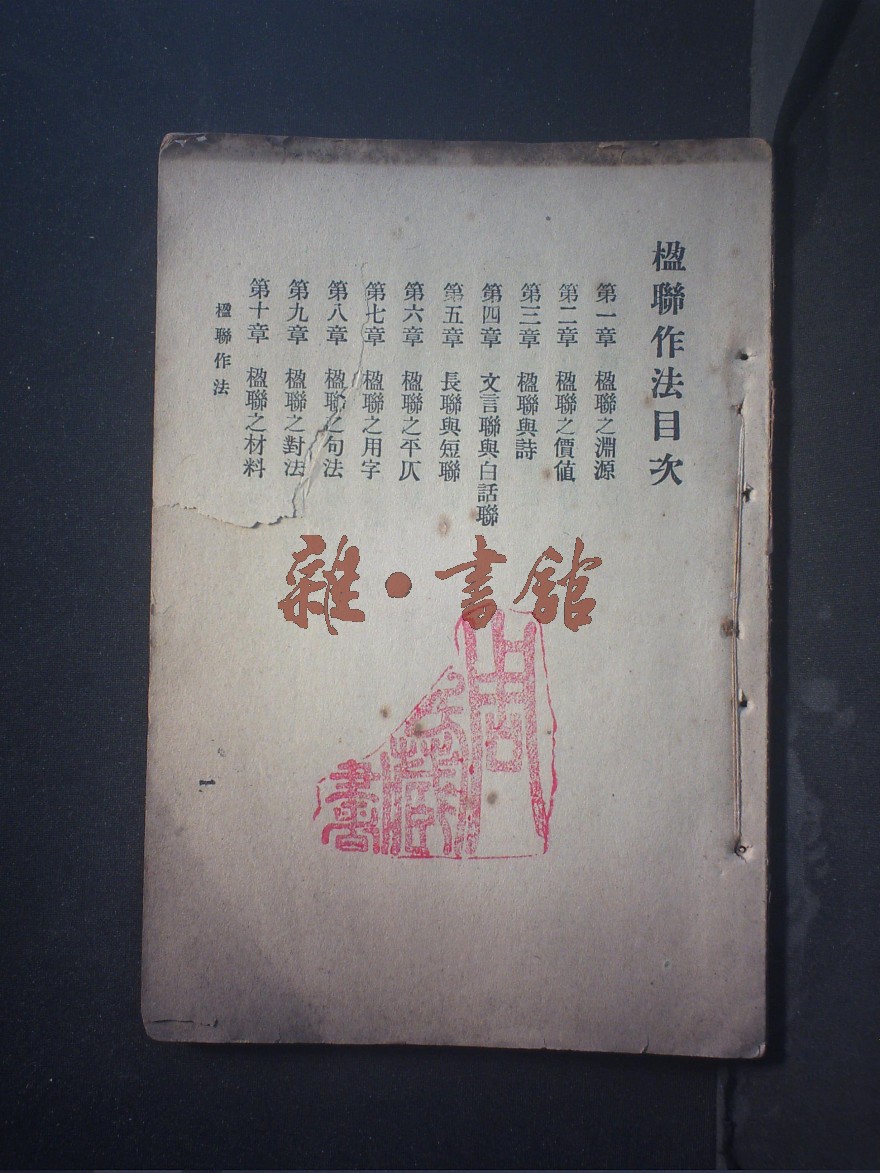 楹聯作法目次
第一章 楹聯之淵源
第二章 楹聯之價値
第三章 楹聯與詩
第四章 文言聯與白話聯
第五章 長聯與短聯
第六章 楹聯之平仄
第七章 楹聯之用字
第八章 楹聯之句法
第九章 楹聯之對法
第十章 楹聯之材料
楹聯作法
一
雜·書館
藏
書